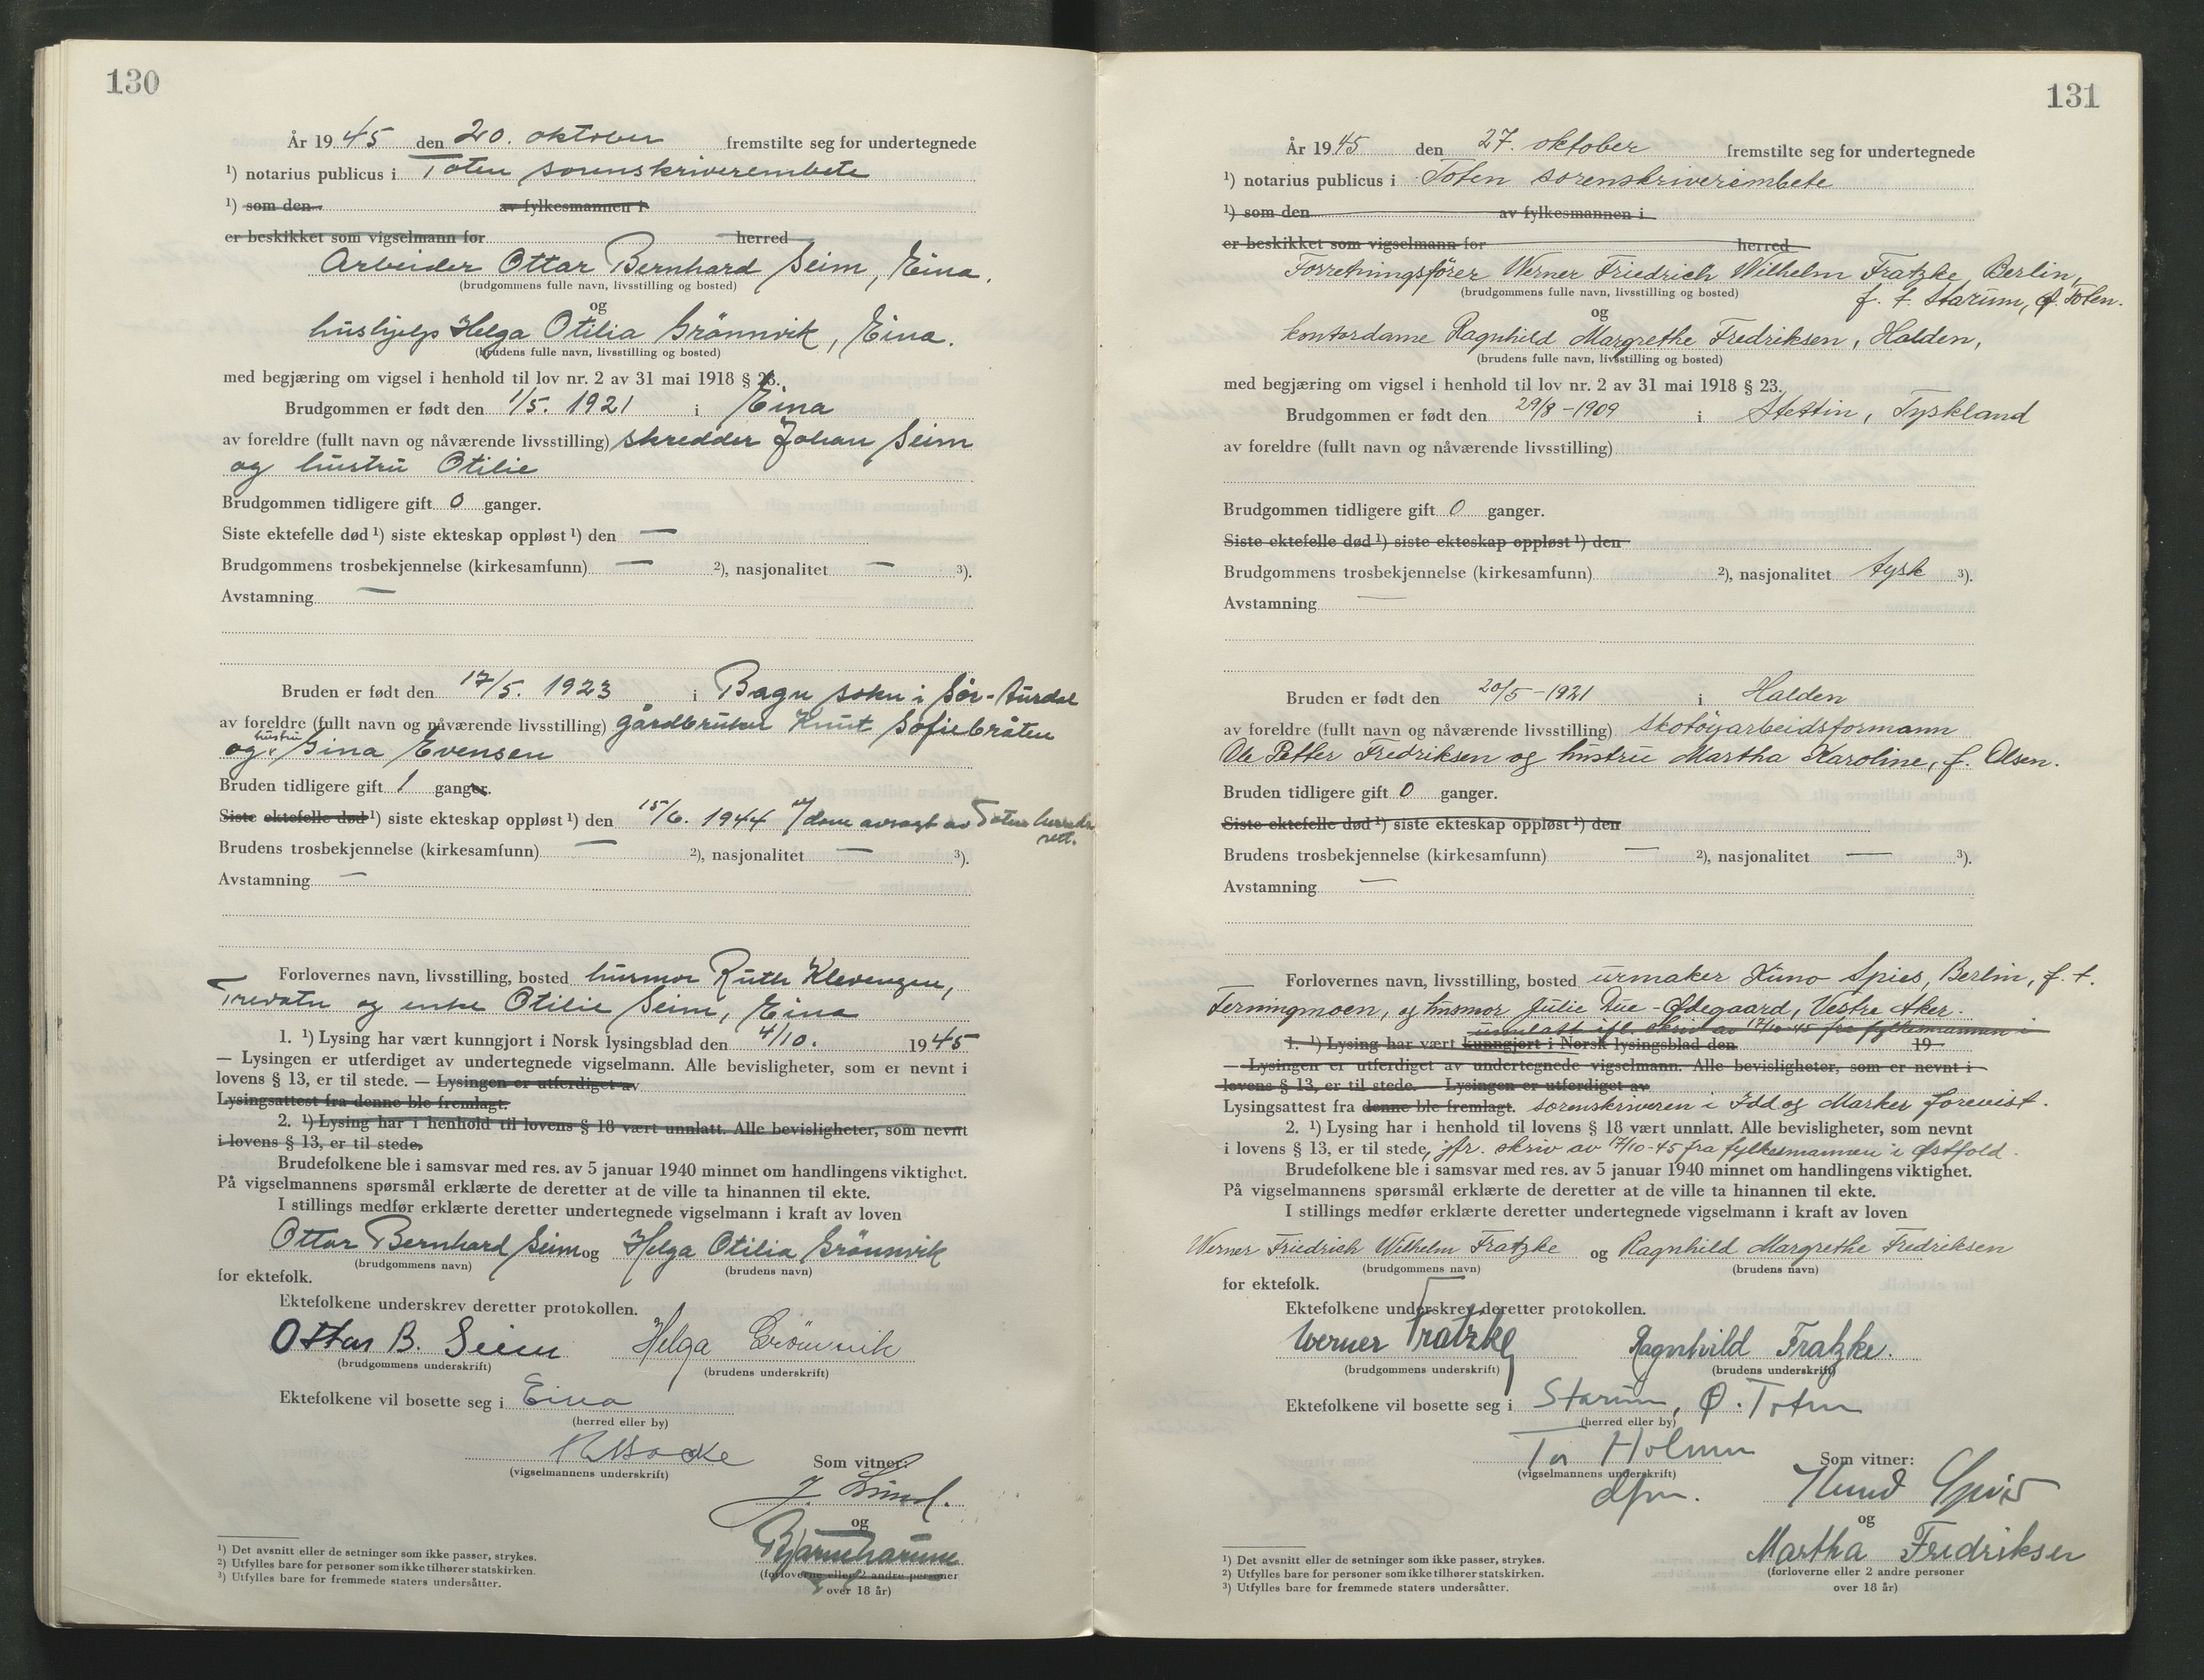 130
År 1945 den 20. oktober fremstilte seg for undertegnede
¹) notarius publicus i Toten sorenskriverembete
¹) som den av fylkesmannen i
er beskikket som vigselmann for herred
Arbeider Ottar Bernhard Seim, Eina.
(brudgommens fulle navn, livsstilling og bosted)
og
hushjelp Helga Otilia Grönnvik, Eina.
(brudens fulle navn, livsstilling og bosted)
med begjæring om vigsel i henhold til lov nr. 2 av 31 mai 1918 § 23.
Brudgommen er født den 1/5. 1921 i Eina
av foreldre (fullt navn og nåværende livsstilling) skredder Johan Seim
og hustru Otilie
Brudgommen tidligere gift 0 ganger.
Siste ektefelle død ¹) siste ekteskap oppløst ¹) den —
Brudgommens trosbekjennelse (kirkesamfunn) — ²), nasjonalitet — ³).
Avstamning —
Bruden er født den 17/5. 1923 i Bagn sokn i Sør-Aurdal
av foreldre (fullt navn og nåværende livsstilling) gårdbruker Knut Sofiebråten
og hustru Gina Evensen
Bruden tidligere gift 1 ganger.
Siste ektefelle død ¹) siste ekteskap oppløst ¹) den 15/6. 1944 v/dom avsagt av Toten herreds-
rett.
Brudens trosbekjennelse (kirkesamfunn) — ²), nasjonalitet — ³).
Avstamning —
Forlovernes navn, livsstilling, bosted husmor Ruth Klevengen,
Trevatn og enke Otilie Seim, Eina
1. ¹) Lysing har vært kunngjort i Norsk lysingsblad den 4/10. 1945
— Lysingen er utferdiget av undertegnede vigselmann. Alle bevisligheter, som er nevnt i
lovens § 13, er til stede. — Lysingen er utferdiget av
Lysingsattest fra denne ble fremlagt.
2. ¹) Lysing har i henhold til lovens § 18 vært unnlatt. Alle bevisligheter, som nevnt
i lovens § 13, er til stede.
Brudefolkene ble i samsvar med res. av 5 januar 1940 minnet om handlingens viktighet.
På vigselmannens spørsmål erklærte de deretter at de ville ta hinannen til ekte.
I stillings medfør erklærte deretter undertegnede vigselmann i kraft av loven
Ottar Bernhard Seim og Helga Otilia Grönnvik
(brudgommens navn) (brudens navn)
for ektefolk.
Ektefolkene underskrev deretter protokollen.
Ottar B. Seim Helga Grönnvik
(brudgommens underskrift) (brudens underskrift)
Ektefolkene vil bosette seg i Eina
(herred eller by)
(vigselmannens underskrift)
Som vitner:
J. Lund.
og
(forloverne eller 2 andre personer
over 18 år)
¹) Det avsnitt eller de setninger som ikke passer, strykes.
²) Utfylles bare for personer som ikke tilhører statskirken.
³) Utfylles bare for fremmede staters undersåtter.
131
År 1945 den 27. oktober fremstilte seg for undertegnede
¹) notarius publicus i Toten sorenskriverembete
¹) som den av fylkesmannen i
er beskikket som vigselmann for herred
Forretningsfører Werner Friedrich Wilhelm Fratzke, Berlin,
(brudgommens fulle navn, livsstilling og bosted) f. t. Starum, Ø. Toten.
og
kontordame Ragnhild Margrethe Fredriksen, Halden,
(brudens fulle navn, livsstilling og bosted)
med begjæring om vigsel i henhold til lov nr. 2 av 31 mai 1918 § 23.
Brudgommen er født den 29/8-1909 i Stettin, Tyskland
av foreldre (fullt navn og nåværende livsstilling)
Brudgommen tidligere gift 0 ganger.
Siste ektefelle død ¹) siste ekteskap oppløst ¹) den
Brudgommens trosbekjennelse (kirkesamfunn) ²), nasjonalitet tysk ³).
Avstamning —
Bruden er født den 20/5-1921 i Halden
av foreldre (fullt navn og nåværende livsstilling) skotöyarbeidsformann
Ole Petter Fredriksen og hustru Martha Karoline, f. Olsen.
Bruden tidligere gift 0 ganger.
Siste ektefelle død ¹) siste ekteskap oppløst ¹) den
Brudens trosbekjennelse (kirkesamfunn) — ²), nasjonalitet — ³).
Avstamning —
Forlovernes navn, livsstilling, bosted urmaker Kuno Spies, Berlin, f. t.
Terningmoen, og husmor Julie Due-Ødegaard, Vestre Aker.
unnlatt ifl. skriv av 17/10-45 fra fylkesmannen i
1. ¹) Lysing har vært kunngjort i Norsk lysingsblad den 19
— Lysingen er utferdiget av undertegnede vigselmann. Alle bevisligheter, som er nevnt i
lovens § 13, er til stede. — Lysingen er utferdiget av
Lysingsattest fra denne ble fremlagt. sorenskriveren i Idd og Marker forevist.
2. ¹) Lysing har i henhold til lovens § 18 vært unnlatt. Alle bevisligheter, som nevnt
i lovens § 13, er til stede, jfr. skriv av 17/10-45 fra fylkesmannen i Østfold.
Brudefolkene ble i samsvar med res. av 5 januar 1940 minnet om handlingens viktighet.
På vigselmannens spørsmål erklærte de deretter at de ville ta hinannen til ekte.
I stillings medfør erklærte deretter undertegnede vigselmann i kraft av loven
Werner Friedrich Wilhelm Fratzke og Ragnhild Margrethe Fredriksen
(brudgommens navn) (brudens navn)
for ektefolk.
Ektefolkene underskrev deretter protokollen.
Werner Fratzke Ragnhild Fratzke.
(brudgommens underskrift) (brudens underskrift)
Ektefolkene vil bosette seg i Starum, Ø. Toten
(herred eller by)
Tor Holmen
(vigselmannens underskrift)
dfm.
Som vitner:
Kuno Spies
og
Martha Fredriksen
(forloverne eller 2 andre personer
over 18 år)
¹) Det avsnitt eller de setninger som ikke passer, strykes.
²) Utfylles bare for personer som ikke tilhører statskirken.
³) Utfylles bare for fremmede staters undersåtter.